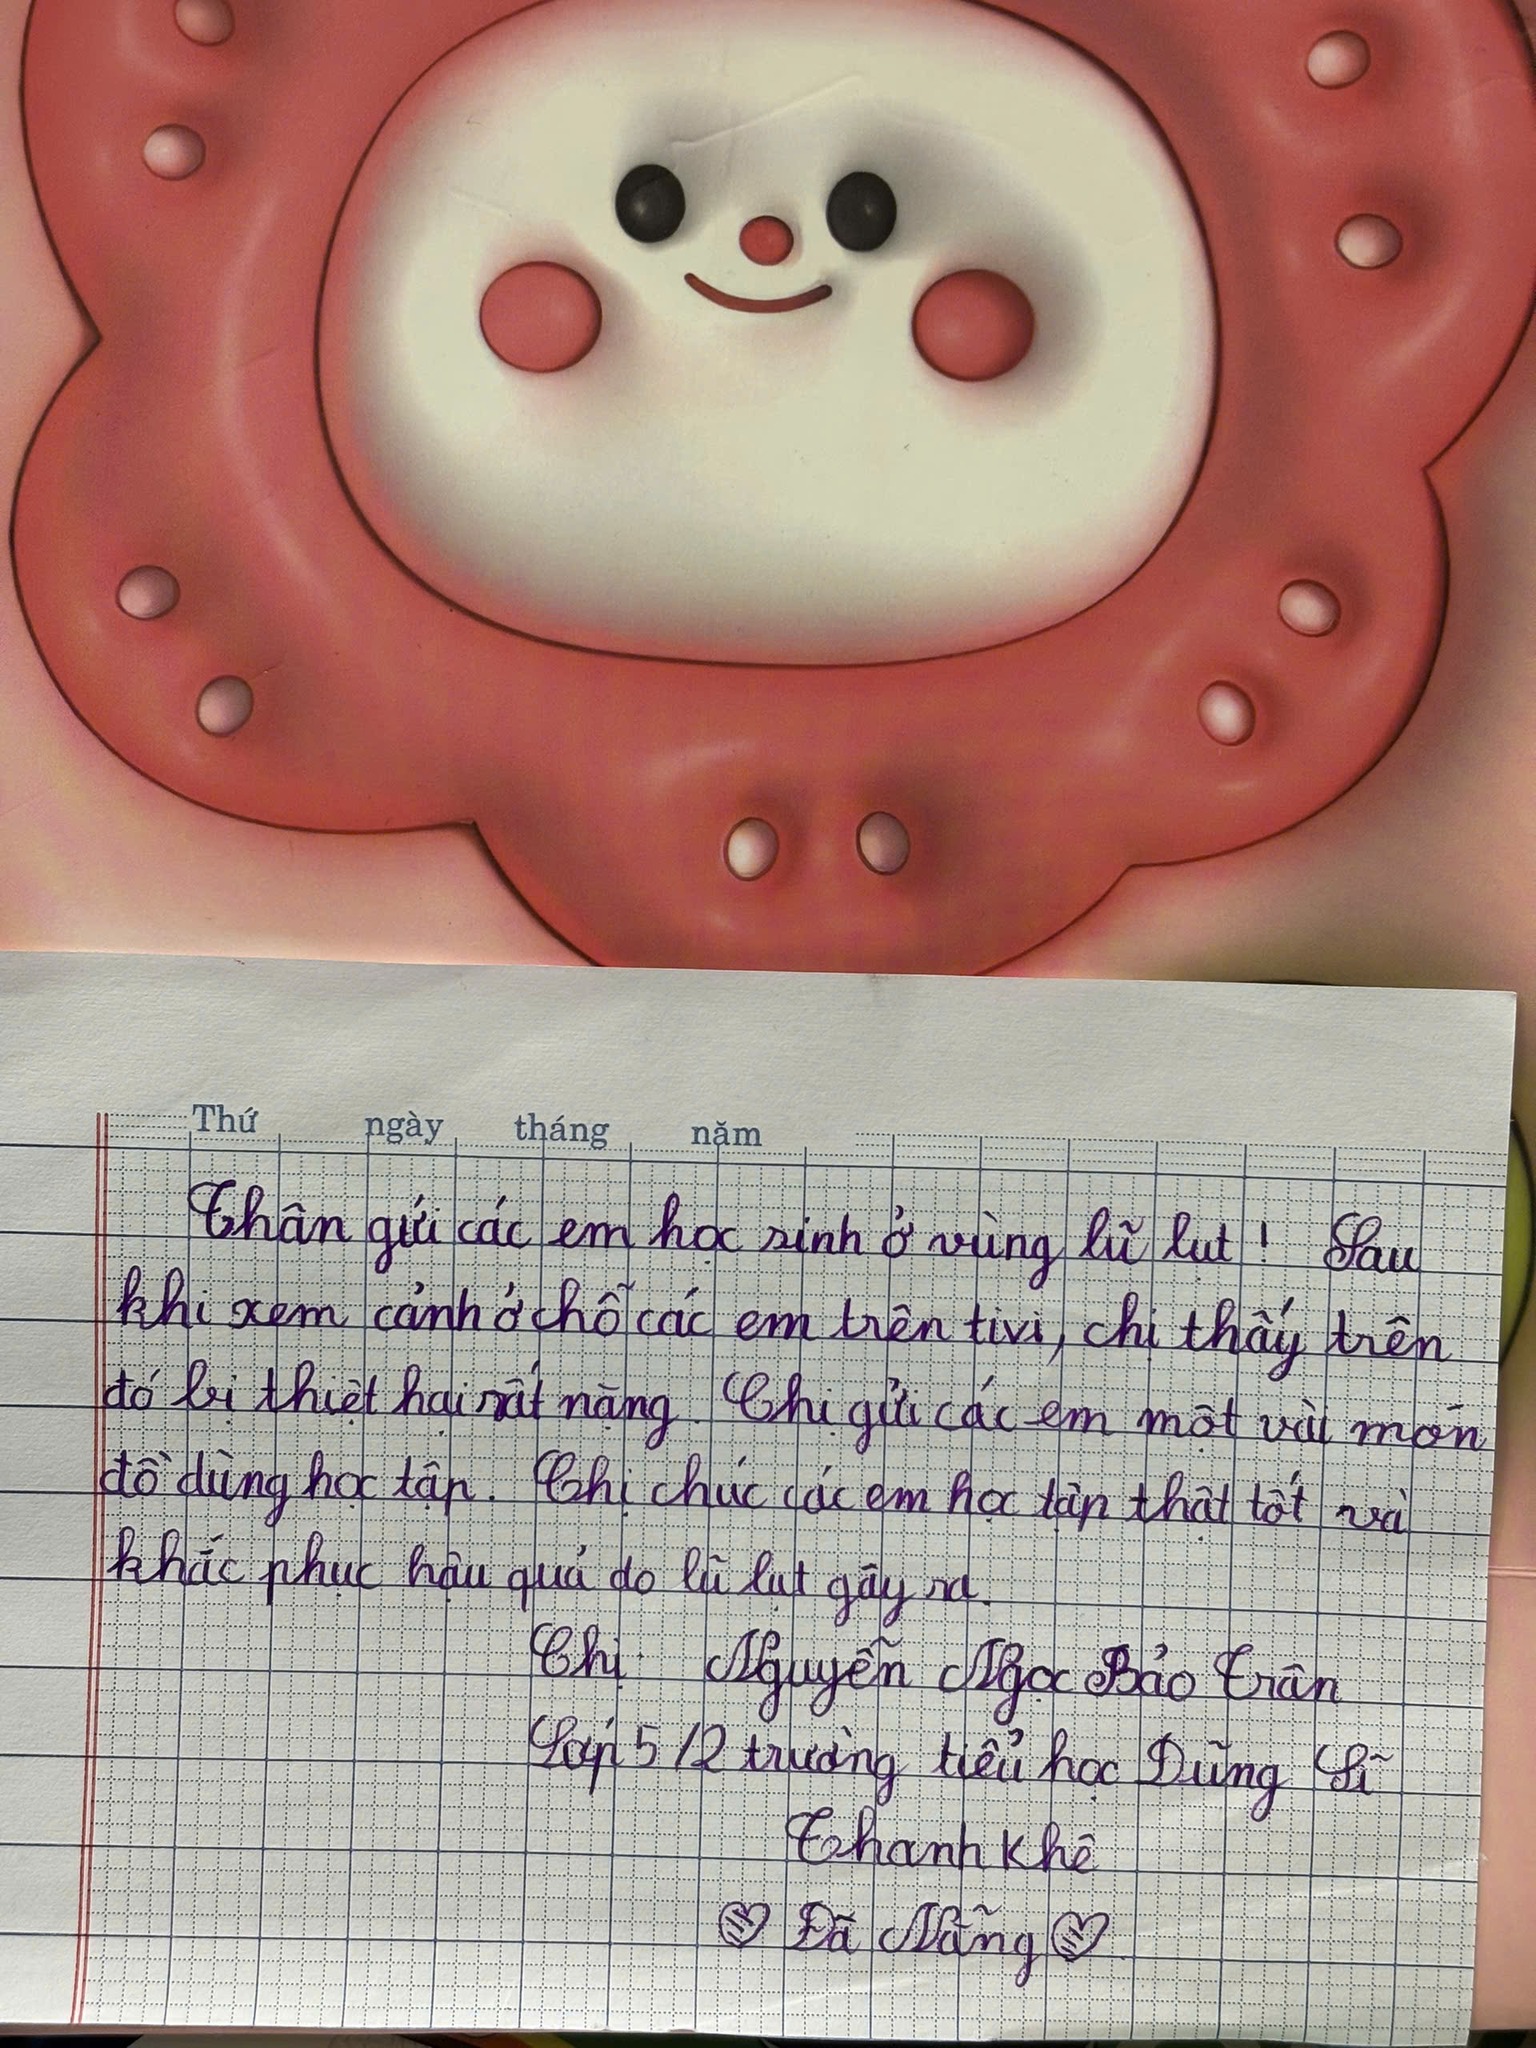 Thứ ngày tháng năm
Thân gửi các em học sinh ở vùng lũ lụt! Sau
khi xem cảnh ở chỗ các em trên tivi, chị thấy trên
đó bị thiệt hại rất nặng. Chị gửi các em một vài món
đồ dùng học tập. Chị chúc các em học tập thật tốt và
khắc phục hậu quả do lũ lụt gây ra.
Chị Nguyễn Ngọc Bảo Trân
Lớp 5/2 trường tiểu học Dũng Sĩ
Thanh Khê
Đà Nẵng